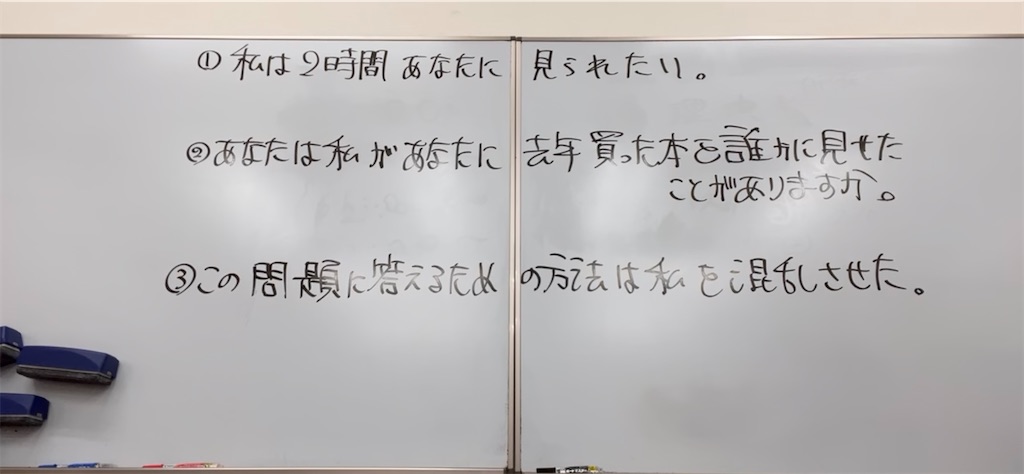 ① 私は2時間あなたに見られたい。
② あなたは私があなたに去年買った本を誰かに見せた
ことがありますか。
③ この問題に答えるための方法は私を混乱させた。